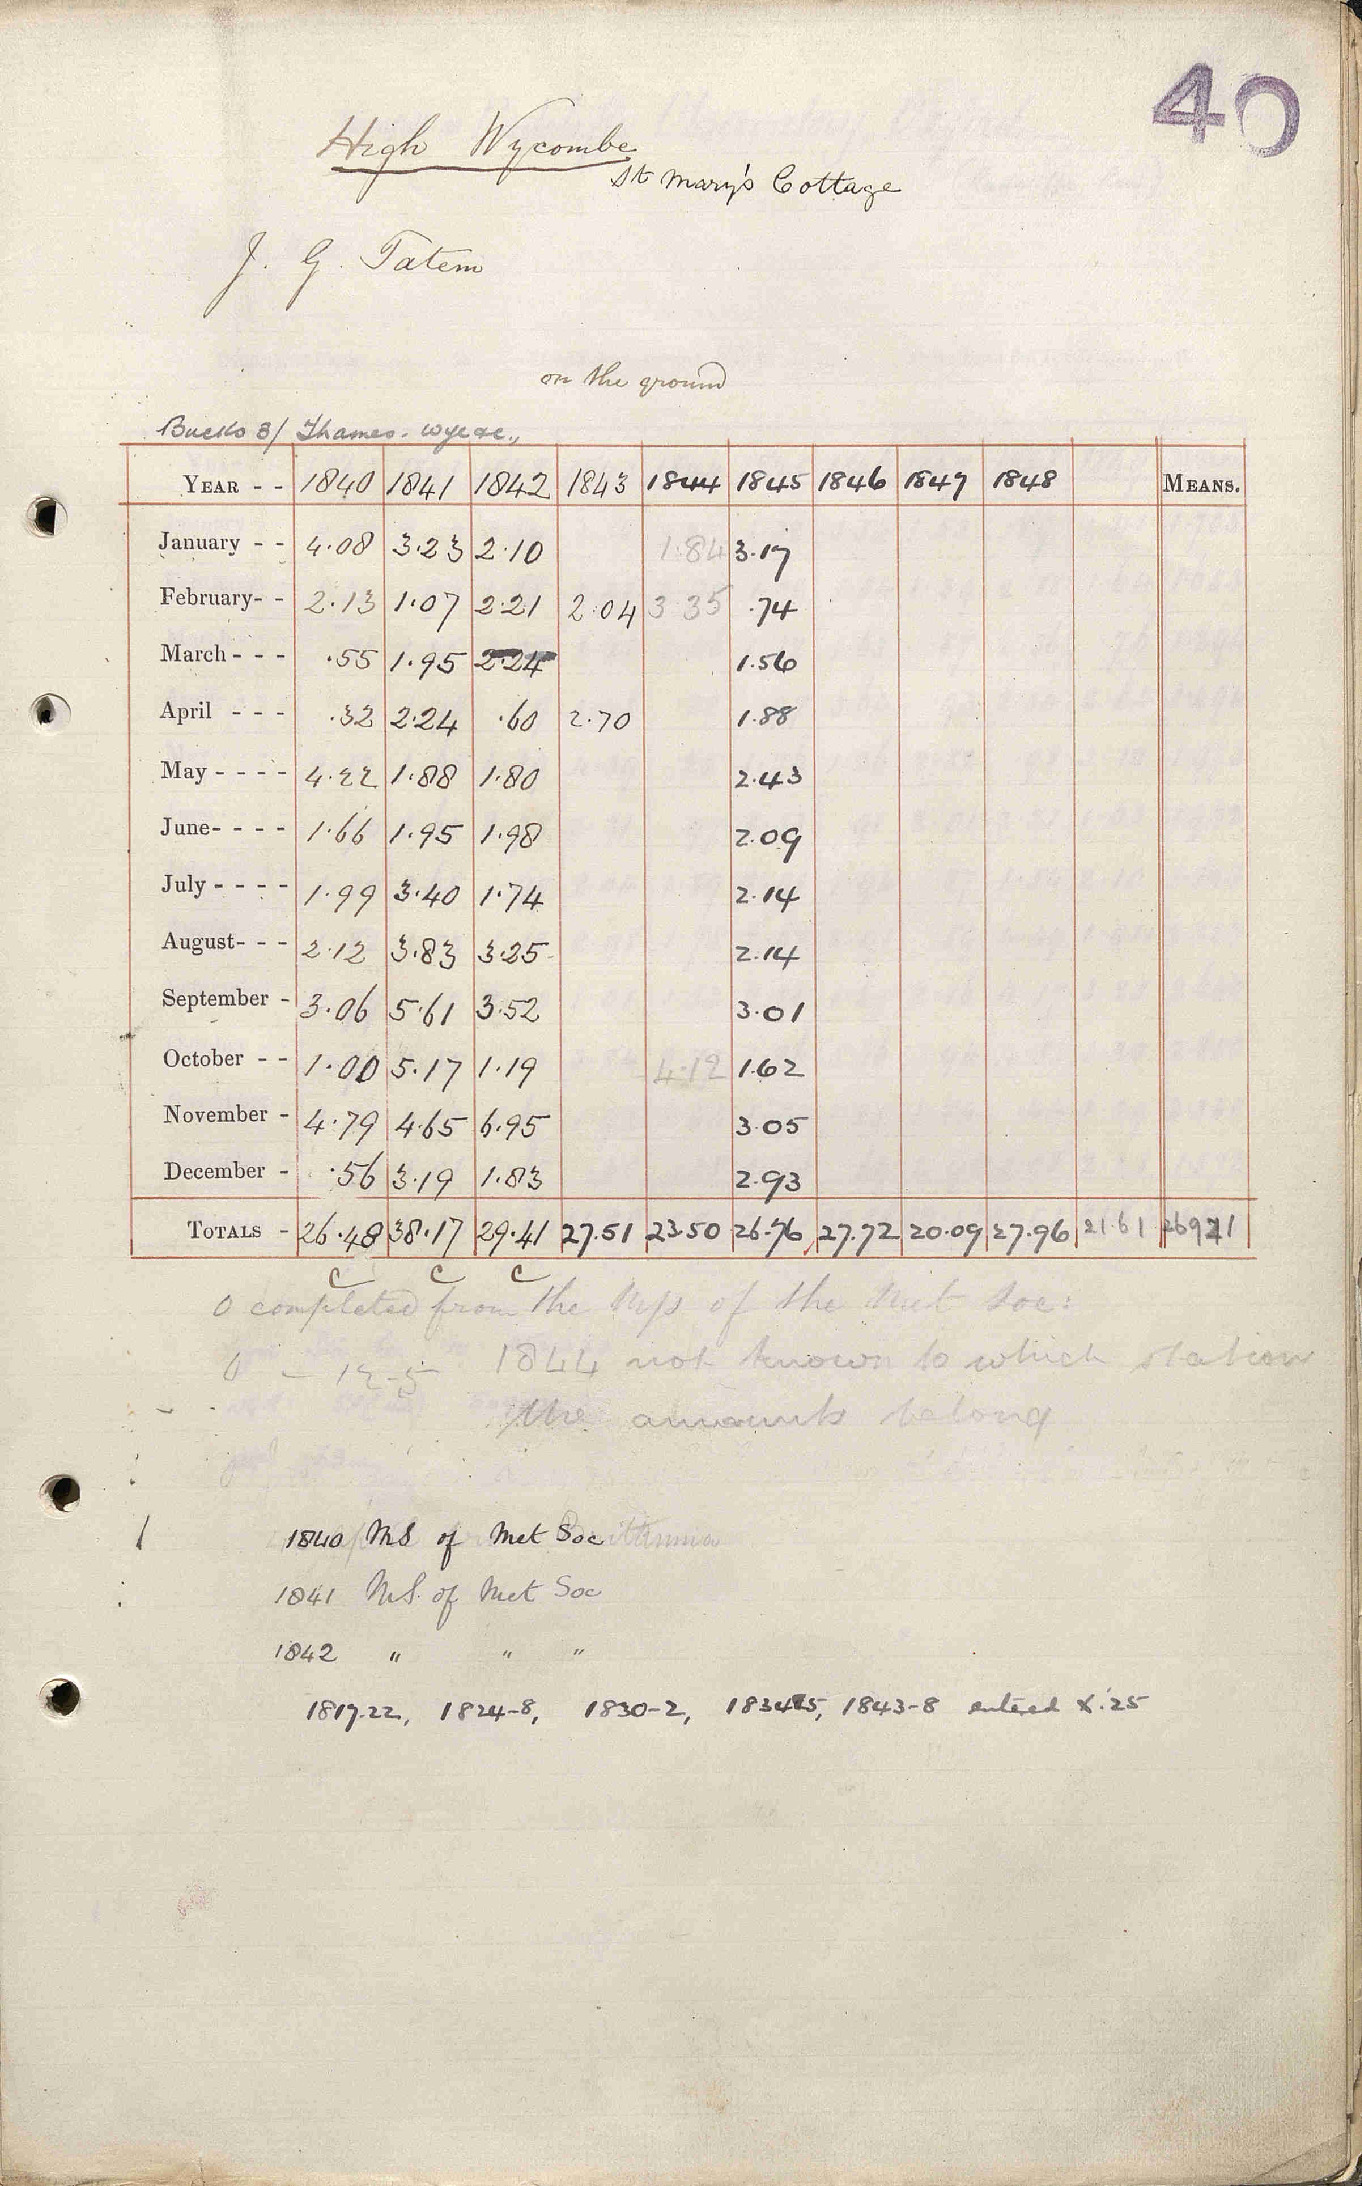 40
High Wycombe
St Mary's Cottage
J. G. Tatem
on the ground
Bucks 3/ Thames - Wye &c.,
YEAR - - 1840 1841 1842 1843 1844 1845 1846 1847 1848 MEANS.
January - - 4.08 3.23 2.10 1.84 3.17
February- - 2.13 1.07 2.21 2.04 3.35 .74
March - - - .55 1.95 2.24 1.56
April - - - .32 2.24 .60 2.70 1.88
May - - - - 4.22 1.88 1.80 2.43
June- - - - 1.66 1.95 1.98 2.09
July - - - - 1.99 3.40 1.74 2.14
August- - - 2.12 3.83 3.25 2.14
September - 3.06 5.61 3.52 3.01
October - - 1.00 5.17 1.19 4.12 1.62
November - 4.79 4.65 6.95 3.05
December - .56 3.19 1.83 2.93
TOTALS - 26.48 38.17 29.41 27.51 23.50 26.76 27.72 20.09 27.96 21.61
c c c
0 completed from the M/s of the Met Soc:
0 - 12-5 1844 not known to which station
the amounts belong
1840 MS of Met Soc
1841 MS. of Met Soc
1842 " " "
1817-22, 1824-8, 1830-2, 1843-8 entered X.25